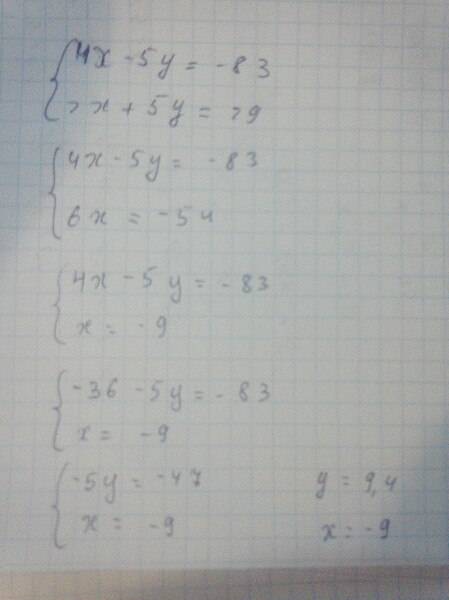 4x - 5y = -83
2x + 5y = 29
4x - 5y = -83
6x = -54
4x - 5y = -83
x = -9
-36 - 5y = -83
x = -9
-5y = -47 y = 9,4
x = -9 x = -9